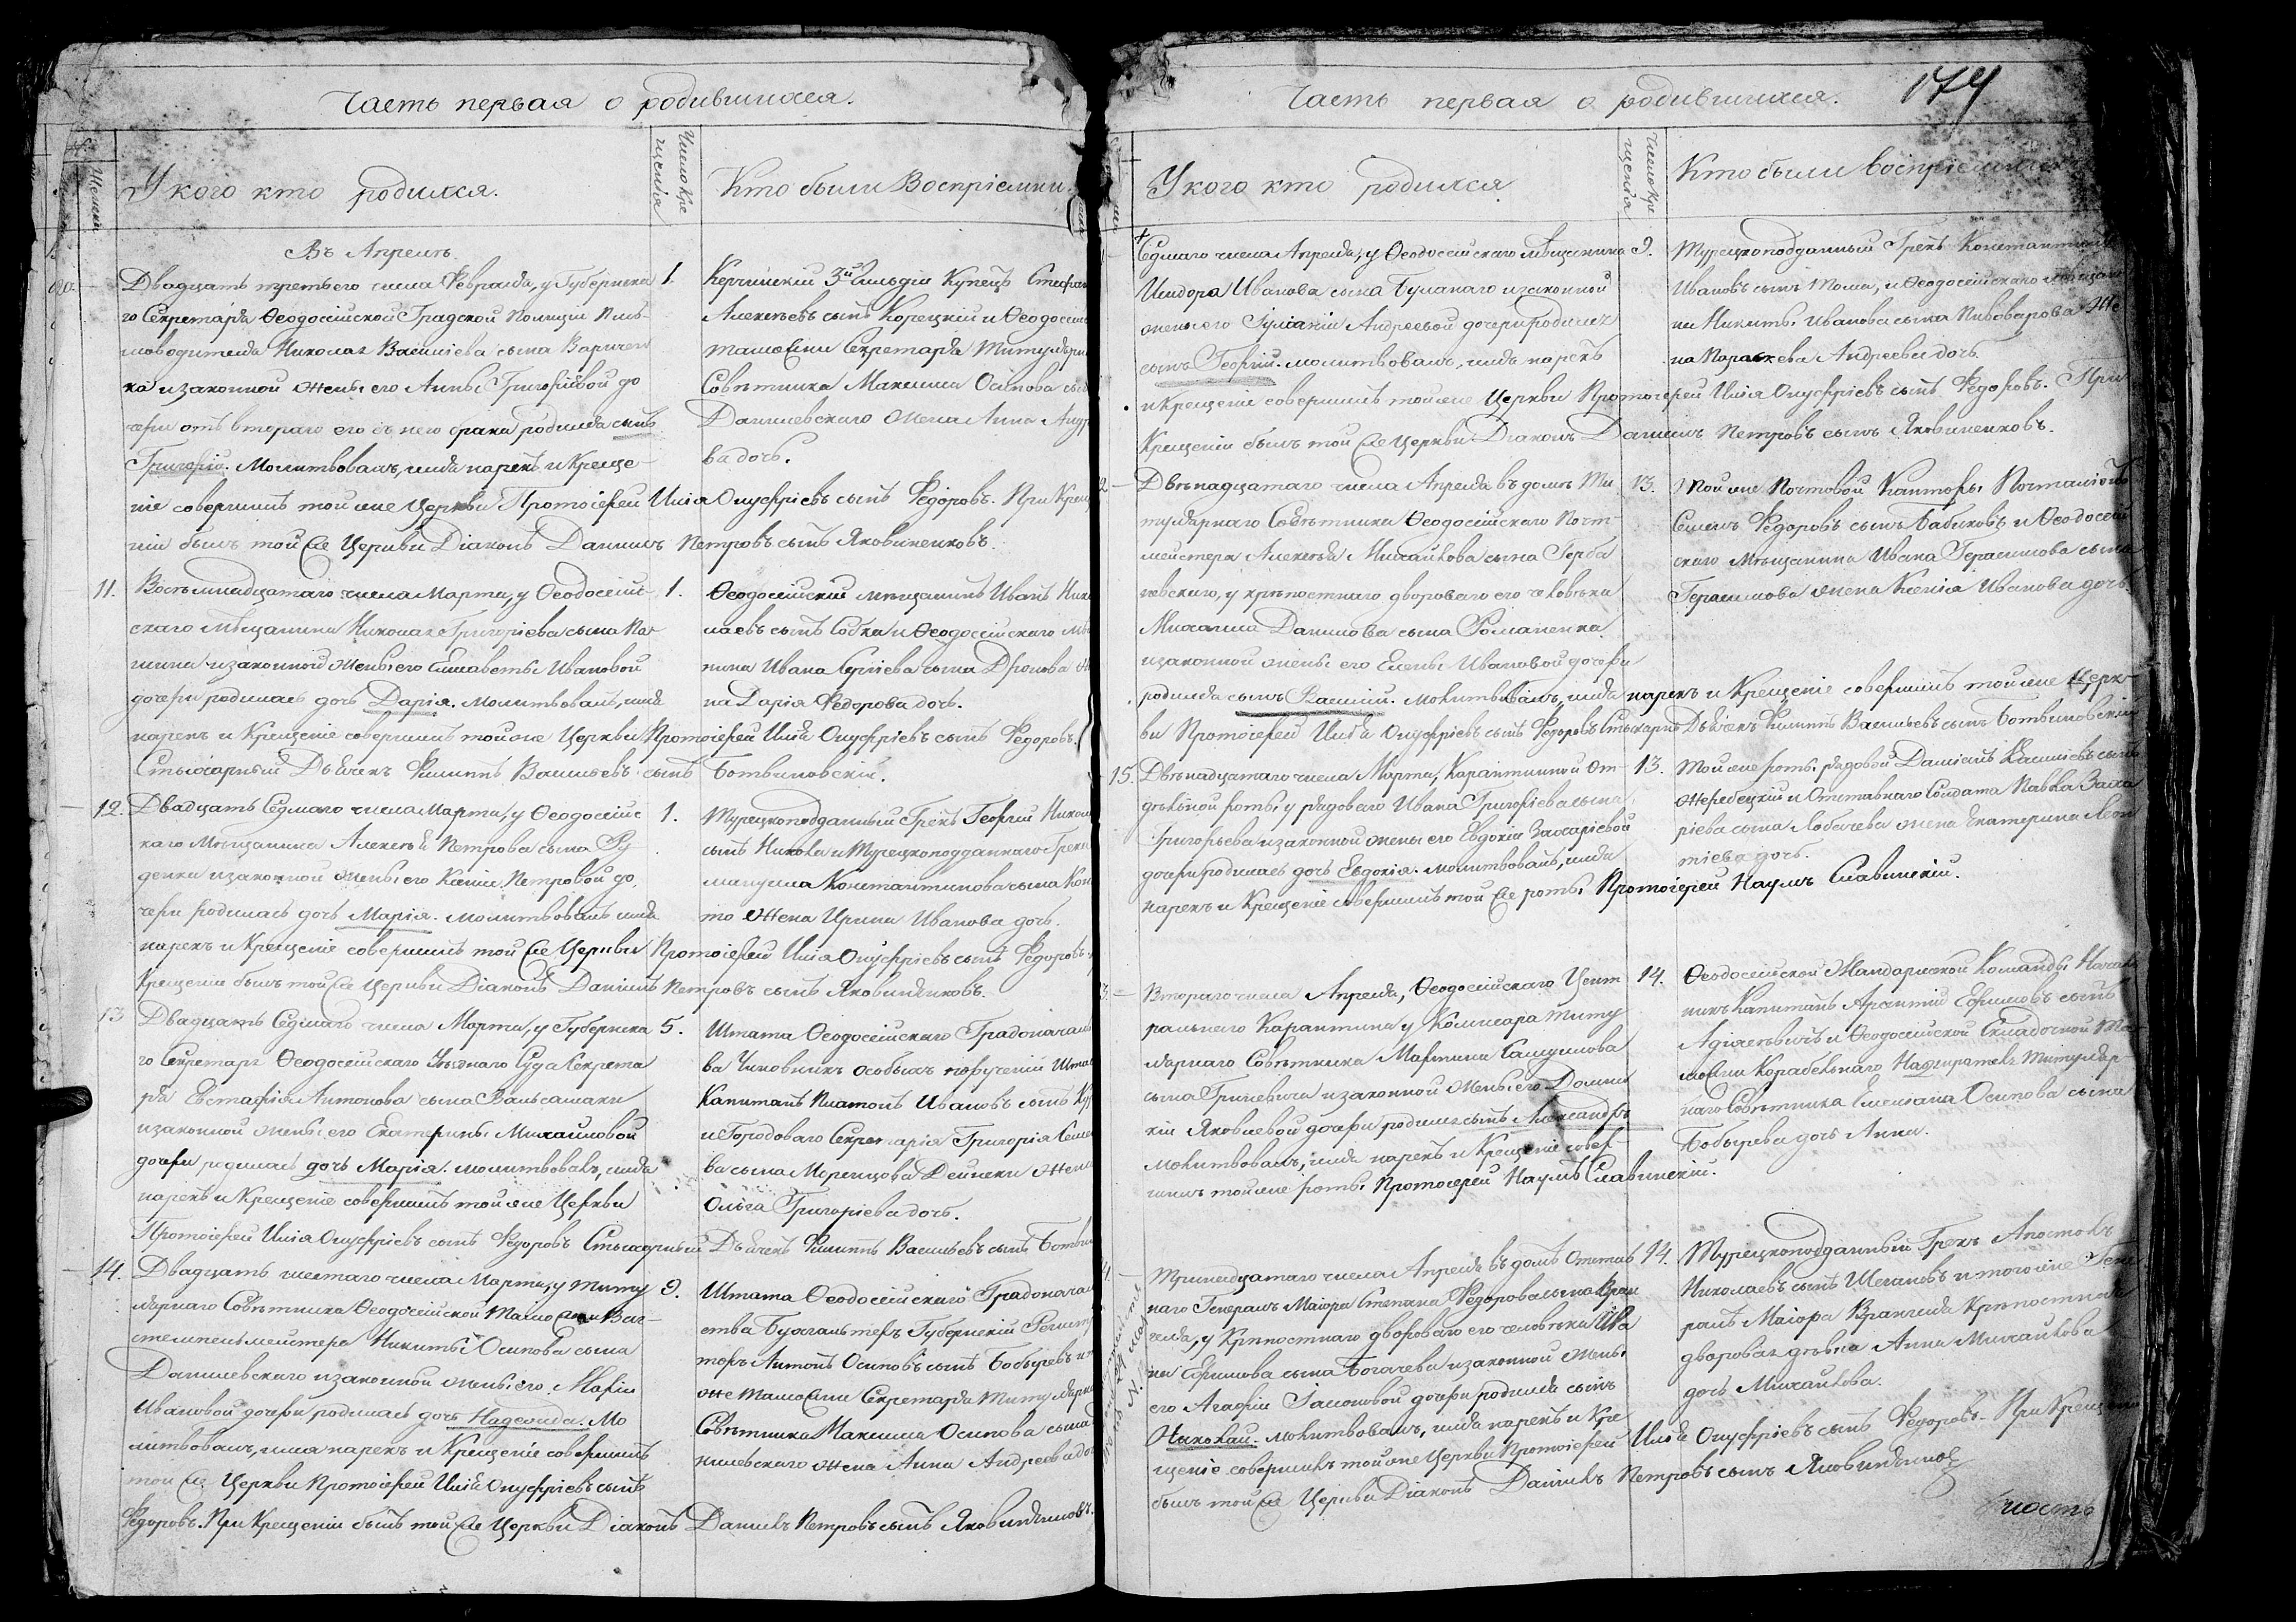 Часть первая о родившихся.
У кого кто родился.
Число Кре
щенія
Кто были Воспріемни
Въ Апрелѣ.
Двадцать третьего числа Февраля, у Губернска
1.
го Секретаря Ѳеодосійской Градской Полиціи Пись
моводителя Николая Василіева сына
ка и законной жены его Анны Григоріевой до
чери отъ втораго его съ него брака родился сынъ
Григорій. Молитвовалъ, имя нарекъ и Креще
ніе совершилъ тойже Церкви Протоіерей Илія Онуфріевъ сынъ Федоровъ. При Крещ
ніи былъ той же Церкви Діаконъ Даніилъ Петровъ сынъ Яковиненковъ.
Керчинскій 3й Гильдіи Купецъ Стефан
Алексѣевъ сынъ Корецкій и Ѳеодосій
Таможни Секретаря Титулярн
Совѣтника Максима Осипова сы
Данилевскаго жена Анна Андр
ва дочь.
11.
Восьмнадцатаго числа Марта, у Ѳеодосій
1.
скаго Мѣщанина Николая Григоріева сына
и законной жены его Елисаветы Ивановой
дочери родилась дочь Дарія. Молитвовалъ, имя
нарекъ и Крещеніе совершилъ тойже Церкви Протоіерей Илія Онуфріевъ сынъ Федоровъ.
Стихарный Дьячекъ Филиппъ Васильевъ сынъ Ботвиновскій.
Ѳеодосійскій мѣщанинъ Иванъ Нико
лаевъ сынъ Собка и Ѳеодосійскаго мѣ
нина Ивана Сергіева сына Дронова же
на Дарія Федорова дочь.
12.
Двадцать Седмаго числа Марта, у Ѳеодосійс
1.
каго Мѣщанина Алексѣя Петрова сына Ру
денка и законной жены его Ксеніи Петровой до
чери родилась дочь Марія. Молитвовалъ имя
нарекъ и Крещеніе совершилъ той же Церкви Протоіерей Илія Онуфріевъ сынъ Федоровъ.
Крещеніи былъ той же Церкви Діаконъ Даніилъ Петровъ сынъ Яковиненковъ.
Турецкоподданный Грекъ Георгій Никол
сынъ Никола и Турецкоподданнаго Грека
Мануила Константинова сына Кон
то жена Ирина Иванова дочь.
13
Двадцать Седмаго числа Марта, у Губернска
5.
го Секретаря Ѳеодосійскаго Уѣзднаго Суда Секрета
ря Евстафія Антонова сына Вальсамаки
и законной жены его Екатерины Михайловой
дочери родилась дочь Марія. Молитвовалъ, имя
нарекъ и Крещеніе совершилъ тойже Церкви
Протоіерей Илія Онуфріевъ сынъ Федоровъ Стихарный Дьячекъ Филиппъ Васильевъ сынъ Ботви
Штата Ѳеодосійскаго Градоначаль
ва Чиновникъ особыхъ порученій Шта
Капитанъ Платонъ Ивановъ сынъ
и Городоваго Секретаря Григорія Семе
ва сына Меренцова Дейнеки жена
Ольга Григоріева дочь.
14.
Двадцать шестаго числа Марта, у Титу
9.
лярнаго Совѣтника Ѳеодосійской Таможни Ваг
стемпельмейстера Никиты Осипова сына
Данилевскаго и законной жены его Маріи
Ивановой дочери родилась дочь Надежда. Мо
литвовалъ, имя нарекъ и Крещеніе совершилъ
той же Церкви Протоіерей Илія Онуфріевъ сынъ
Федоровъ. При Крещеніи былъ той же Церкви Діаконъ Даніилъ Петровъ сынъ Яковиненковъ.
Штата Ѳеодосійскаго Градонача
ства Бухгалтеръ Губернскій Регист
торъ Антонъ Осиповъ сынъ Бобыревъ и
же Таможни Секретаря Титулярна
Совѣтника Максима Осипова сына
нилевскаго жена Анна Андреева до
Часть первая о родившихся.
174
У кого кто родился
Число Кре
щенія
Кто были Воспріемники
Седмаго числа Апреля, у Ѳеодосійскаго мѣщанина
9.
Исидора Иванова сына Буланаго и законной
жены его Іуліаніи Андреевой дочери родился
сынъ Георгій. Молитвовалъ, имя нарекъ
и Крещеніе совершилъ тойже Церкви Протоіерей Илія Онуфріевъ сынъ Федоровъ. При
Крещеніи былъ той же Церкви Діаконъ Даніилъ Петровъ сынъ Яковиненковъ.
Турецкоподданный Грекъ Константинъ
Ивановъ сынъ Тома, и Ѳеодосійскаго мѣщани
на Никиты Иванова сына Пивоварова же
на Параскева Андреева дочь.
Двѣнадцатаго числа Апреля въ домѣ Ти
13.
тулярнаго Совѣтника Ѳеодосійскаго Почт
мейстера Алексѣя Михайлова сына Герба
невскаго, у крѣпостнаго двороваго его человѣка
Михаила Данилова сына Романенка
и законной жены его Елены Ивановой дочери
родился сынъ Василій. Молитвовалъ, имя нарекъ и Крещеніе совершилъ тойже Церк
ви Протоіерей Илія Онуфріевъ сынъ Федоровъ Стихарный Дьячекъ Филиппъ Васильевъ сынъ Ботвиновскій
Тойже Почтовой Канторы Почталіонъ
Семенъ Федоровъ сынъ Бабиковъ и Ѳеодосій
скаго Мѣщанина Ивана Герасимова сына
Герасимова жена Ксенія Иванова дочь
15.
Двѣнадцатаго числа Марта, Карантинной От
13.
дѣльной роты у рядоваго Ивана Григоріева сына
Григорьева и законной жены его Евдокіи Захаріевой
дочери родилась дочь Евдокія. Молитвовалъ, имя
нарекъ и Крещеніе совершилъ той же роты Протоіерей Наумъ Славинскій.
Тойже роты рядовой Даміанъ Василіевъ сынъ
Жеребецкій и Отставнаго Солдата Павла Заха
ріева сына Лобачева жена Екатерина Леон
тіева дочь.
Втораго числа Апреля, Ѳеодосійскаго Цент
14.
ральнаго Карантина у Комисара Титу
лярнаго Совѣтника Мартина Самуилова
сына Гриневича и законной жены его Домни
кіи Яковлевой дочери родился сынъ Александръ
Молитвовалъ, имя нарекъ и Крещеніе совер
шилъ тойже роты Протоіерей Наумъ Славинскій.
Ѳеодосійской Жандармской Команды Началь
никъ Капитанъ Арсентій Ефимовъ сынъ
и Ѳеодосійской Складочной Та
можни Корабельнаго Надзирателя Титуляр
наго Совѣтника Емельяна Осипова сына
Бобырева дочь Анна.
Тринадцатаго числа Апреля въ домѣ Отстав
14.
наго Генералъ Маіора Степана Федорова сына Вран
геля, у Крѣпостнаго двороваго его человѣка Ива
на Ефимова сына Богачева и законной жены
его Агафіи Іасоновой дочери родился сынъ
Николай. Молитвовалъ, имя нарекъ и Кре
щеніе совершилъ тойже Церкви Протоіерей Илія Онуфріевъ сынъ Федоровъ. При Крещеніи
былъ той же Церкви Діаконъ Даніилъ Петровъ сынъ Яковиненковъ
Турецкоподданный Грекъ Апостолъ
Николаевъ сынъ и тогоже Гене
ралъ Маіора Врангеля Крѣпостная
дворовая дѣвка Анна Михайлова
дочь Михайлова.
часть